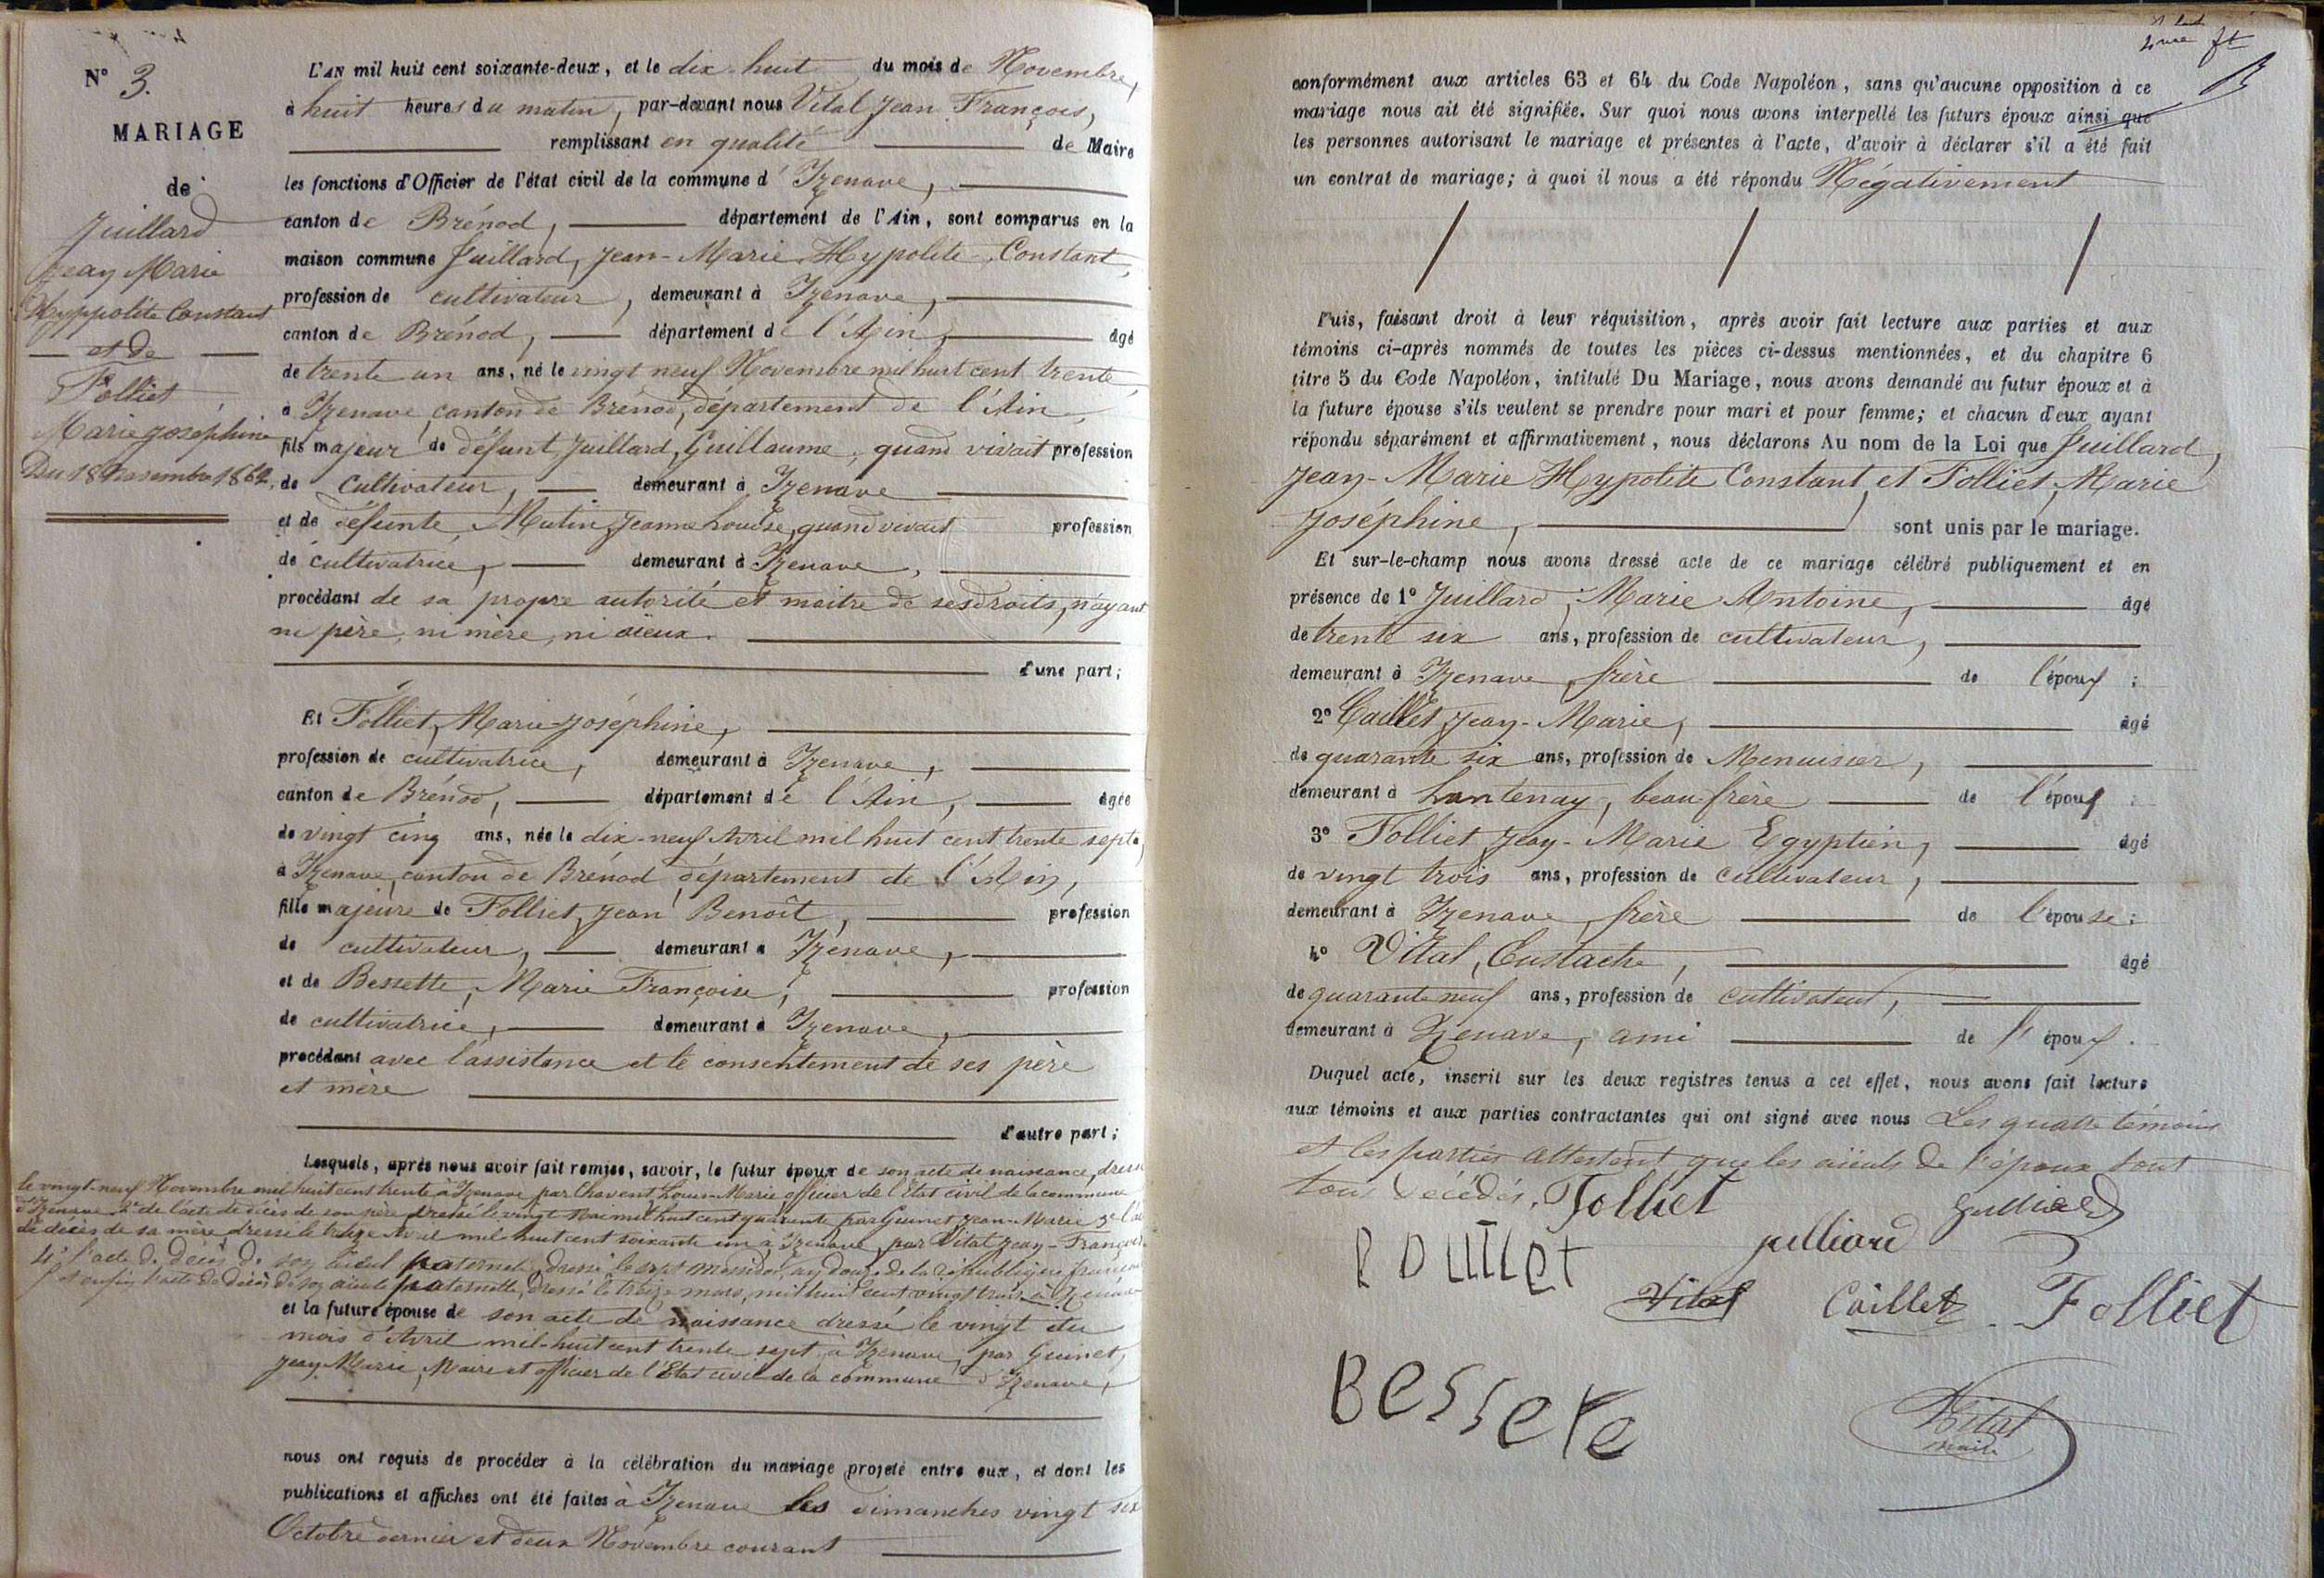 N° 3.
MARIAGE
de
Juillard
Jean Marie
Hyppolite Constant
et de
Folliet
Marie Joséphine
Du 18 Novembre 1862.
L'AN mil huit cent soixante-deux, et le dix-huit du mois de Novembre,
à huit heures du matin, par-devant nous Vital Jean François,
remplissant en qualité de Maire
les fonctions d'Officier de l'état civil de la commune d'Izenave,
canton de Brénod, département de l'Ain, sont comparus en la
maison commune Juillard, Jean-Marie Hypolite Constant,
profession de cultivateur, demeurant à Izenave,
canton de Brénod, département de l'Ain, âgé
de trente un ans, né le vingt neuf Novembre mil huit cent trente,
à Izenave, canton de Brénod, département de l'Ain,
fils majeur de défunt Juillard, Guillaume, quand vivait profession
de Cultivateur, demeurant à Izenave
et de défunte Mutin Jeanne Louise, quand vivait profession
de cultivatrice, demeurant à Izenave,
procédant de sa propre autorité et maitre de ses droits, n'ayant
ni père, ni mère, ni aïeux.
d'une part;
Et Folliet, Marie-Joséphine,
profession de cultivatrice, demeurant à Izenave,
canton de Brénod, département de l'Ain, âgée
de vingt cinq ans, née le dix-neuf Avril mil huit cent trente sept,
à Izenave, canton de Brénod département de l'Ain,
fille majeure de Folliet, Jean Benoît, profession
de cultivateur, demeurant à Izenave,
et de Bessette, Marie Françoise, profession
de cultivatrice, demeurant à Izenave,
procédant avec l'assistance et le consentement de ses père
et mère
d'autre part;
Lesquels, après nous avoir fait remise, savoir, le futur époux de son acte de naissance, dressé
le vingt-neuf Novembre mil huit cent trente à Izenave par Chavent Louis-Marie officier de l'Etat civil de la commune
d'Izenave 2° de l'acte de décès de son père dressé le vingt Mai mil huit cent quarante par Guinet Jean-Marie 3° l'acte
de décès de sa mère dressé le treize Avril mil huit cent soixante un à Izenave, par Vital Jean-François
4° l'acte de décès de son aïeul paternel, dressé le sept Messidor, an douze de la république française
et enfin l'acte de décès de son aïeule paternelle, dressé le treize mars, mil huit cent vingt trois à Izenave
et la future épouse de son acte de naissance dressé le vingt du
mois d'Avril mil-huit cent trente sept à Izenave, par Guinet,
Jean Marie, Maire et officier de l'Etat civil de la commune d'Izenave,
nous ont requis de procéder à la célébration du mariage projeté entre eux, et dont les
publications et affiches ont été faites à Izenave les dimanches vingt six
Octobre dernier et deux Novembre courant
conformément aux articles 63 et 64 du Code Napoléon, sans qu'aucune opposition à ce
mariage nous ait été signifiée. Sur quoi nous avons interpellé les futurs époux ainsi que
les personnes autorisant le mariage et présentes à l'acte, d'avoir à déclarer s'il a été fait
un contrat de mariage; à quoi il nous a été répondu Négativement
Puis, faisant droit à leur réquisition, après avoir fait lecture aux parties et aux
témoins ci-après nommés de toutes les pièces ci-dessus mentionnées, et du chapitre 6
titre 5 du Code Napoléon, intitulé Du Mariage, nous avons demandé au futur époux et à
la future épouse s'ils veulent se prendre pour mari et pour femme; et chacun d'eux ayant
répondu séparément et affirmativement, nous déclarons Au nom de la Loi que Juillard,
Jean-Marie Hypolite Constant, et Folliet, Marie
Joséphine, sont unis par le mariage.
Et sur-le-champ nous avons dressé acte de ce mariage célébré publiquement et en
présence de 1° Juillard, Marie Antoine, âgé
de trente six ans, profession de cultivateur,
demeurant à Izenave, frère de l'époux;
2° Caillet, Jean-Marie, âgé
de quarante six ans, profession de Menuisier,
demeurant à Lantenay, beau-frère de l'époux;
3° Folliet Jean-Marie Egyptien, âgé
de vingt trois ans, profession de cultivateur,
demeurant à Izenave, frère de l'épouse;
4° Vital, Eustache, âgé
de quarante neuf ans, profession de cultivateur,
demeurant à Izenave, ami de l'époux.
Duquel acte, inscrit sur les deux registres tenus à cet effet, nous avons fait lecture
aux témoins et aux parties contractantes qui ont signé avec nous Les quatre témoins
et les parties attestent que les aïeuls de l'époux sont
tous décédés. Folliet
julliard
Vital Caillet Folliet
Bessete
Vital
maire